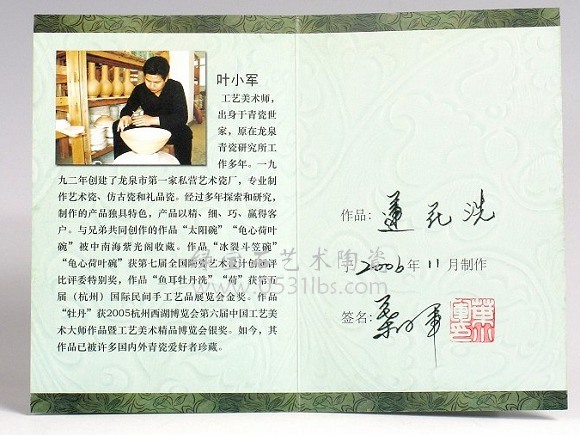 叶小军
工艺美术师，
出身于青瓷世
家，原在龙泉
青瓷研究所工
作多年。一九
九二年创建了龙泉市第一家私营艺术瓷厂，专业制
作艺术瓷、仿古瓷和礼品瓷。经过多年探索和研究，
制作的产品独具特色，产品以精、细、巧、赢得客
户。与兄弟共同创作的作品“太阳碗”“龟心荷叶
碗”被中南海紫光阁收藏。作品“冰裂斗笠碗”
“龟心荷叶碗”获第七届全国陶瓷艺术设计创新评
比评委特别奖，作品“鱼耳牡丹洗”“荷”获第五
届（杭州）国际民间手工艺品展览会金奖。作品
“牡丹”获2005杭州西湖博览会第六届中国工艺美
术大师作品暨工艺美术精品博览会银奖。如今，其
作品已被许多国内外青瓷爱好者珍藏。
作品：莲花洗
于2006年11月制作
签名：叶小军
艺术陶瓷
0531lbs.com